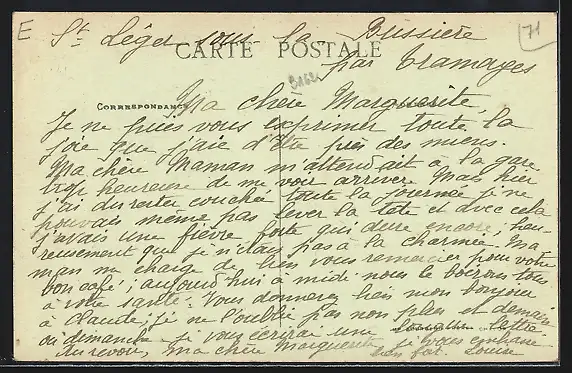 E
71
St Léger sous la Bussière
CARTE POSTALE
par Tramayes
CORRESPONDANCE
Ma chère Marguerite,
Je ne puis vous exprimer toute la
joie que j'aie d'être près des miens.
Ma chère Maman m'attendait à la gare
trop heureuse de me voir arriver. Mais hier
j'ai du rester couchée toute la journée je ne
pouvais même pas lever la tête et avec cela
j'avais une fièvre forte qui dure encore, heu-
reusement que je n'étais pas à la charmée. Ma
man me charge de bien vous remercier pour votre
bon café ; aujourd'hui à midi nous le boirons tous
à votre santé. Vous donnerez bien mon bonjour
à Claude, je ne l'oublie pas non plus et demain
ou dimanche je vous écrirai une lettre
Au revoir, ma chère Marguerite je vous embrasse
bien fort. Louise